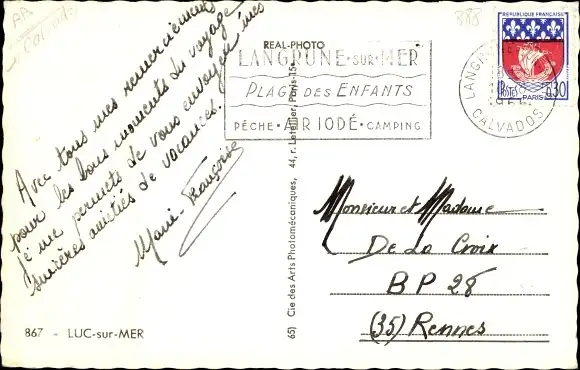 AR
Calvados
888
Avec tous mes remerciements
pour les bons moments du voyage
je me permets de vous envoyer mes
sincères amitiés de vacances.
Marie-Françoise
867 - LUC-sur-MER
REAL-PHOTO
65) Cie des Arts Photomécaniques, 44, r. Letellier, Paris-15e
LANGRUNE-SUR-MER
PLAGE DES ENFANTS
PÊCHE · AIR IODÉ · CAMPING
CALVADOS
REPUBLIQUE FRANÇAISE
POSTES
PARIS
0,30
Monsieur et Madame
De La Croix
BP 28
(35) Rennes